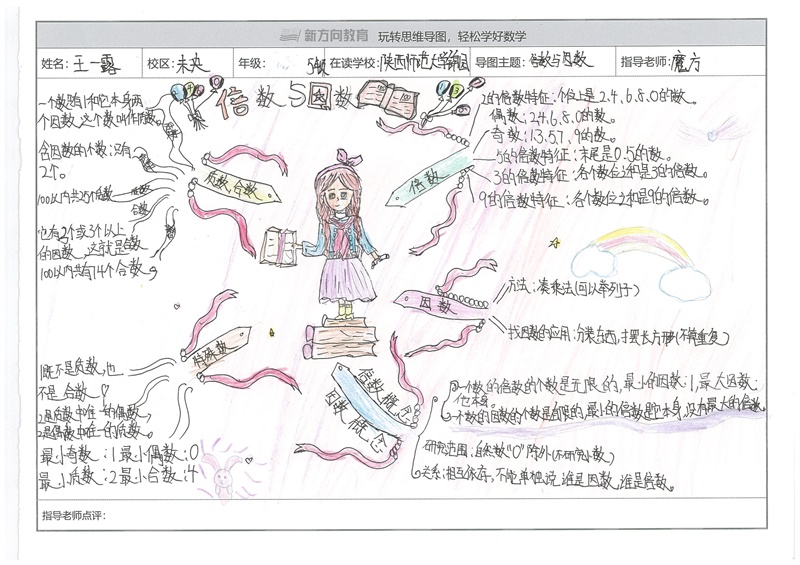 新方向教育 玩转思维导图，轻松学好数学
姓名： 王一露 校区：未央 年级： 在读学校： 导图主题：倍数与因数 指导老师：魔方
倍数与因数
质数，合数
含因数的个数：只有
2个。
100以内共25个质数
合数
也有2个或3个以上
的因数，这就是合数
100以内共有74个合数。
特殊数
1既不是质数，也
不是合数
2是质数中唯一的偶数，
2是偶数中唯一的质数。
最小奇数：1 最小偶数：0
最小质数：2 最小合数：4
倍数
2的倍数特征：个位上是2.4.6.8.0的数。
偶数：2.4.6.8.0的数。
奇数：1.3.5.7.9的数。
5的倍数特征：末尾是0.5的数。
3的倍数特征：各个数位之和是3的倍数。
9的倍数特征：各个数位之和是9的倍数。
因数
方法：凑乘法(可以牵列子)
找因数的应用：分东西，摆长方形(不能重复)
倍数概念
因数概念
一个数的倍数的个数是无限的，最小的因数：1，最大因数：
他本身
一个数的因数的个数是有限的，最小的倍数是它本身，没有最大的倍数
研究范围：自然数"0"除外(不研究小数)
关系：相互依存，不能单独说谁是因数，谁是倍数。
指导老师点评：